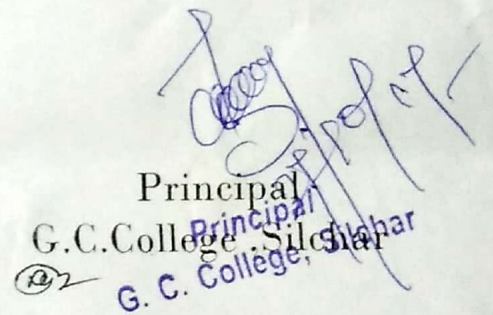 Principal
G.C.College .Silchar
Principal
G. C. College, Silchar